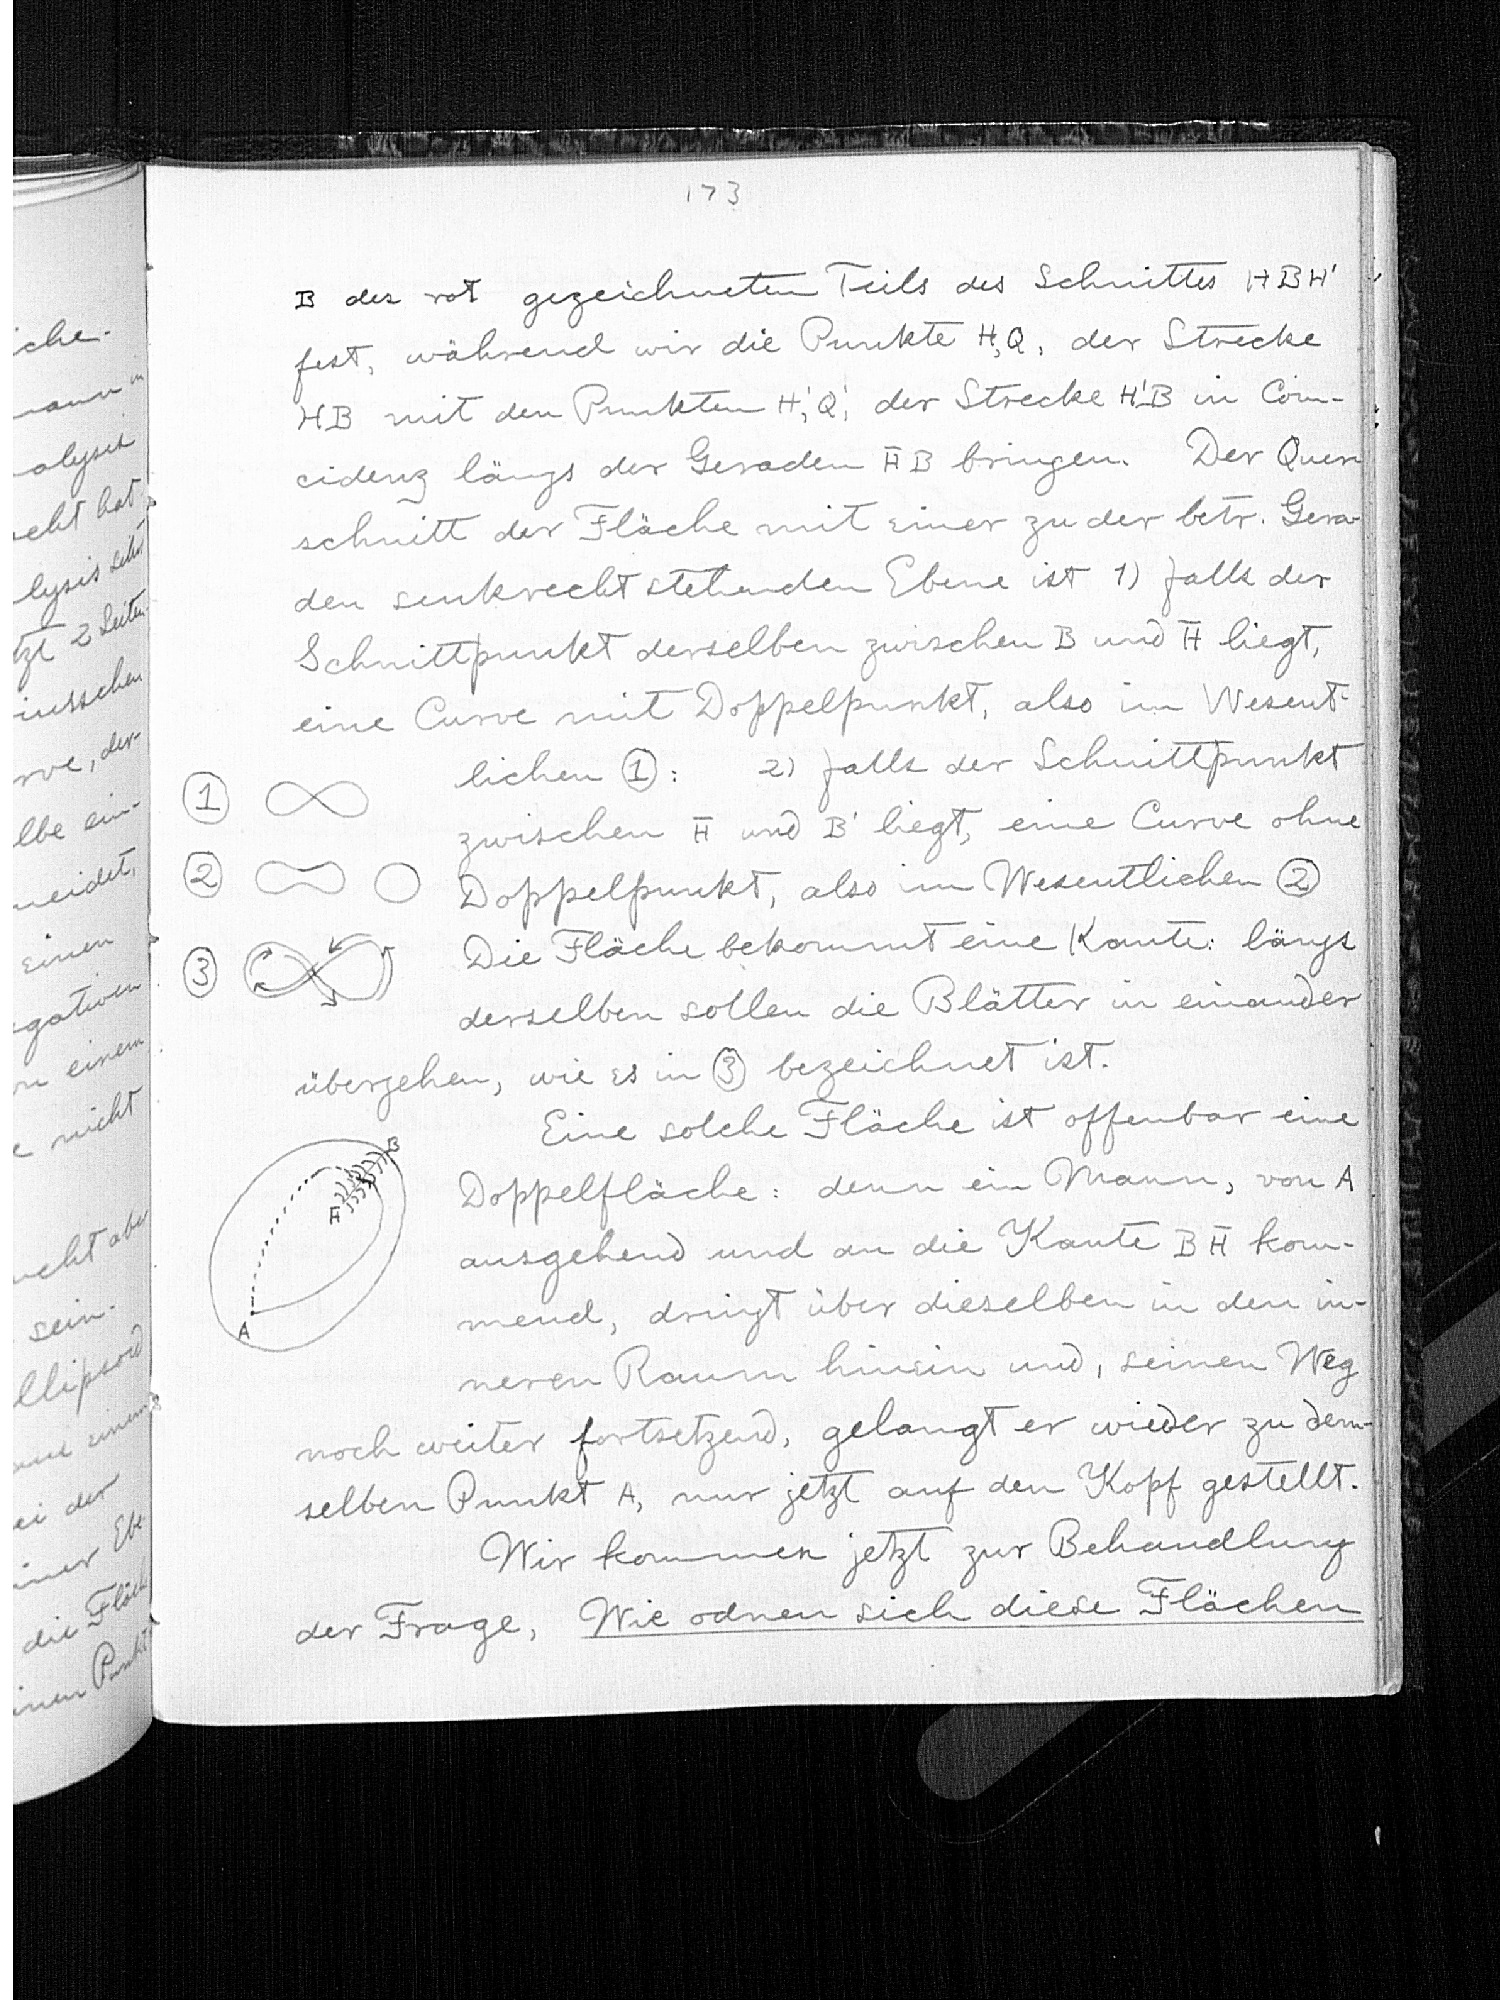 173
B des rot gezeichneten Teils des Schnittes HBH'
fest, während wir die Punkte H, Q, der Strecke
HB mit den Punkten H', Q', der Strecke H'B in Coin-
cidenz längs der Geraden H̄B bringen. Der Quer
schnitt der Fläche mit einer zu der betr. Gera-
den senkrecht stehenden Ebene ist 1) falls der
Schnittpunkt derselben zwischen B und H̄ liegt,
eine Curve mit Doppelpunkt, also im Wesent-
lichen ①: 2) falls der Schnittpunkt
zwischen H̄ und B' liegt, eine Curve ohne
Doppelpunkt, also im Wesentlichen ②
Die Fläche bekommt eine Kante: längs
derselben sollen die Blätter in einander
übergehen, wie es in ③ bezeichnet ist.
①
②
③
Eine solche Fläche ist offenbar eine
Doppelfläche: denn ein Mann, von A
ausgehend und an die Kante B H̄ kom-
mend, dringt über dieselben in den in-
neren Raum hinein und, seinen Weg
noch weiter fortsetzend, gelangt er wieder zu dem-
selben Punkt A, nur jetzt auf den Kopf gestellt.
B
H̄
A
Wir kommen jetzt zur Behandlung
der Frage, Wie odnen sich diese Flächen